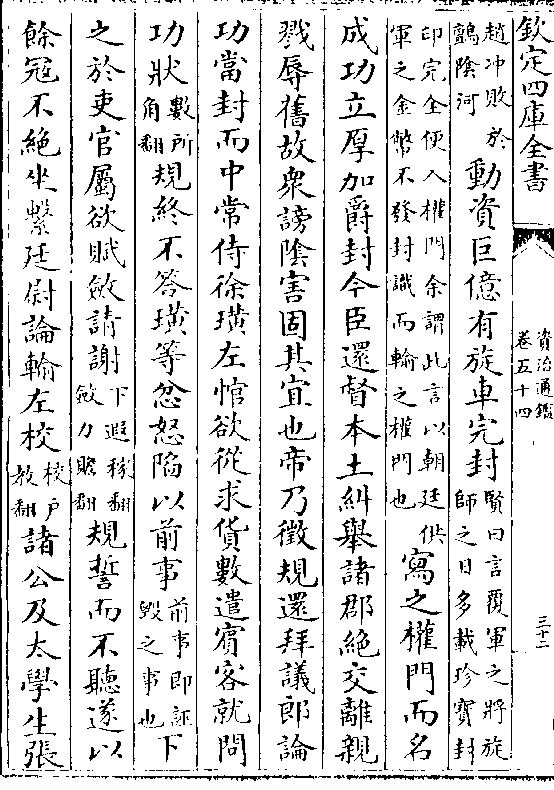 欽定四庫全書
資治通鑑
卷五十四
三十二
趙冲敗於
鸇陰河
動資巨億有旋車完封
賢曰言覆軍之將旋
師之日多載珍寶封
印完全便入權門余謂此言以朝廷供
軍之金幣不發封識而輸之權門也
寫之權門而名
成功立厚加爵封今臣還督本土糾舉諸郡絶交離親
戮辱舊故衆謗隂害固其宜也帝乃徵規還拜議郎論
功當封而中常侍徐璜左悺欲從求貨數遣賓客就問
功狀
數所
角翻
規終不答璜等忿怒陷以前事
前事即誣
毁之事也
下
之於吏官屬欲賦斂請謝
下遐稼翻
斂力贍翻
規誓而不聽遂以
餘冦不絶坐繫廷尉論輸左校
校户
教翻
諸公及太學生張